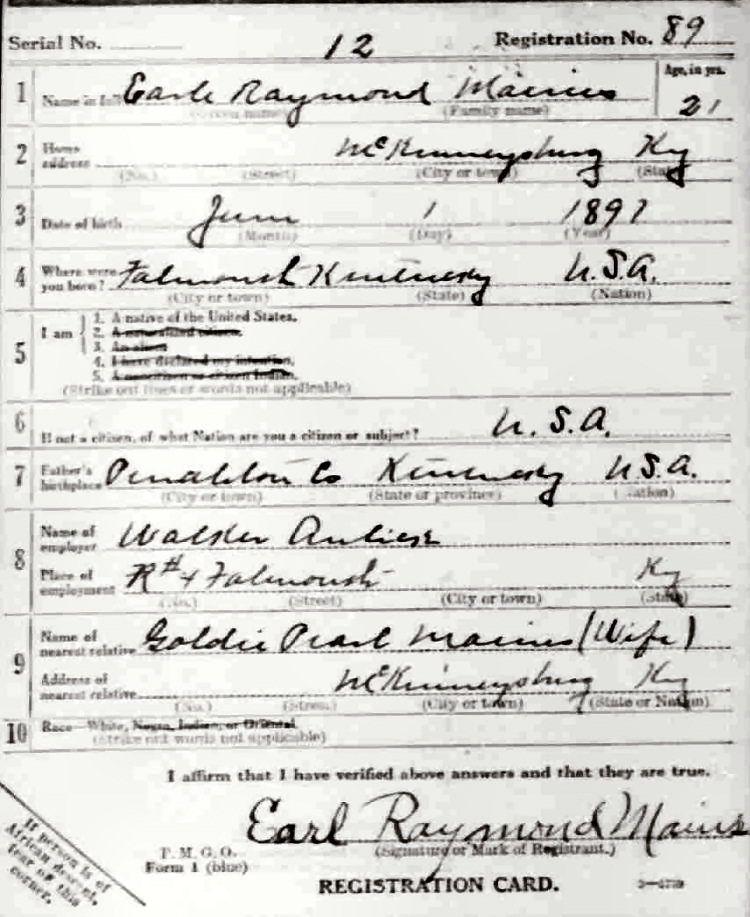 Serial No. 12 Registration No. 89
1 Name in full Earle Raymond Mains Age, in yrs. 21
(Given name) (Family name)
2 Home address McKinneysburg Ky
(No.) (Street) (City or town) (State)
3 Date of birth June 1 1897
(Month) (Day) (Year)
4 Where were you born? Falmouth Kentucky U.S.A.
(City or town) (State) (Nation)
5 I am
1. A native of the United States.
2. A naturalized citizen.
3. An alien
4. I have declared my intention.
5. A noncitizen or citizen Indian.
(Strike out lines or words not applicable)
6 If not a citizen, of what Nation are you a citizen or subject? U.S.A.
7 Father's birthplace Pendleton Co Kentucky U.S.A.
(City or town) (State or province) (Nation)
8 Name of employer Walker
Place of employment R#4 Falmouth Ky
(No.) (Street) (City or town) (State)
9 Name of nearest relative Goldie Pearl Mains (Wife)
Address of nearest relative McKinneysburg Ky
(No.) (Street) (City or town) (State or Nation)
10 Race—White, Negro, Indian, or Oriental
(Strike out words not applicable)
I affirm that I have verified above answers and that they are true.
Earl Raymond Mains
P. M. G. O.
Form 1 (blue)
(Signature or Mark of Registrant.)
REGISTRATION CARD.
If person is of
African descent,
tear off this
corner.